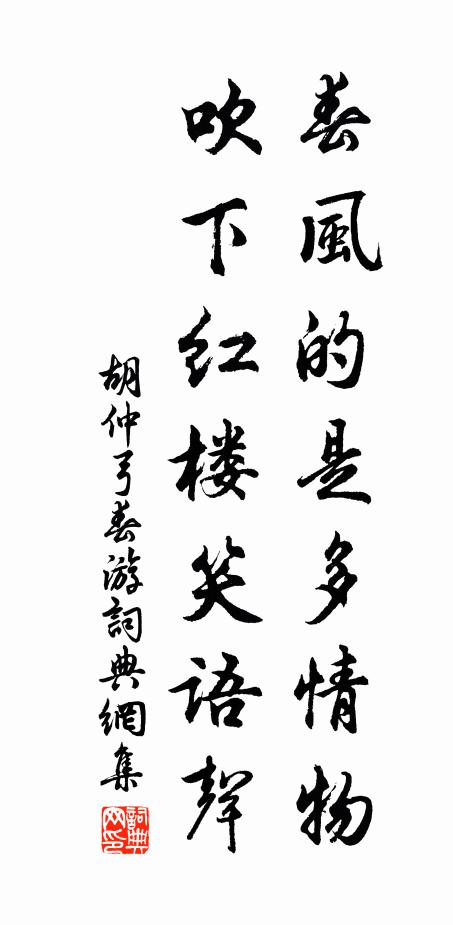 春風的是多情物
吹下红楼笑语聲
胡仲弓春游詞典網集
詞典網印